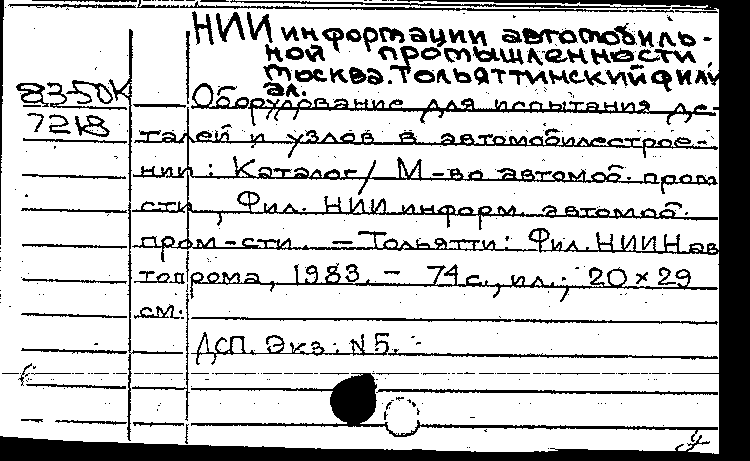 НИИ информации автомобиль-
ной промышленности,
Москва. Тольяттинский фили
ал.
83-50К
7218
Оборудование для испытания де-
талей и узлов в автомобилестрое-
нии: Каталог/ М-во автомоб. пром
сти, Фил. НИИ информ. автомоб.
пром-сти. — Тольятти: Фил. НИИНав
топрома, 1983. - 74 с., ил.; 20 × 29
см.
ДСП. Экз. N 5. -